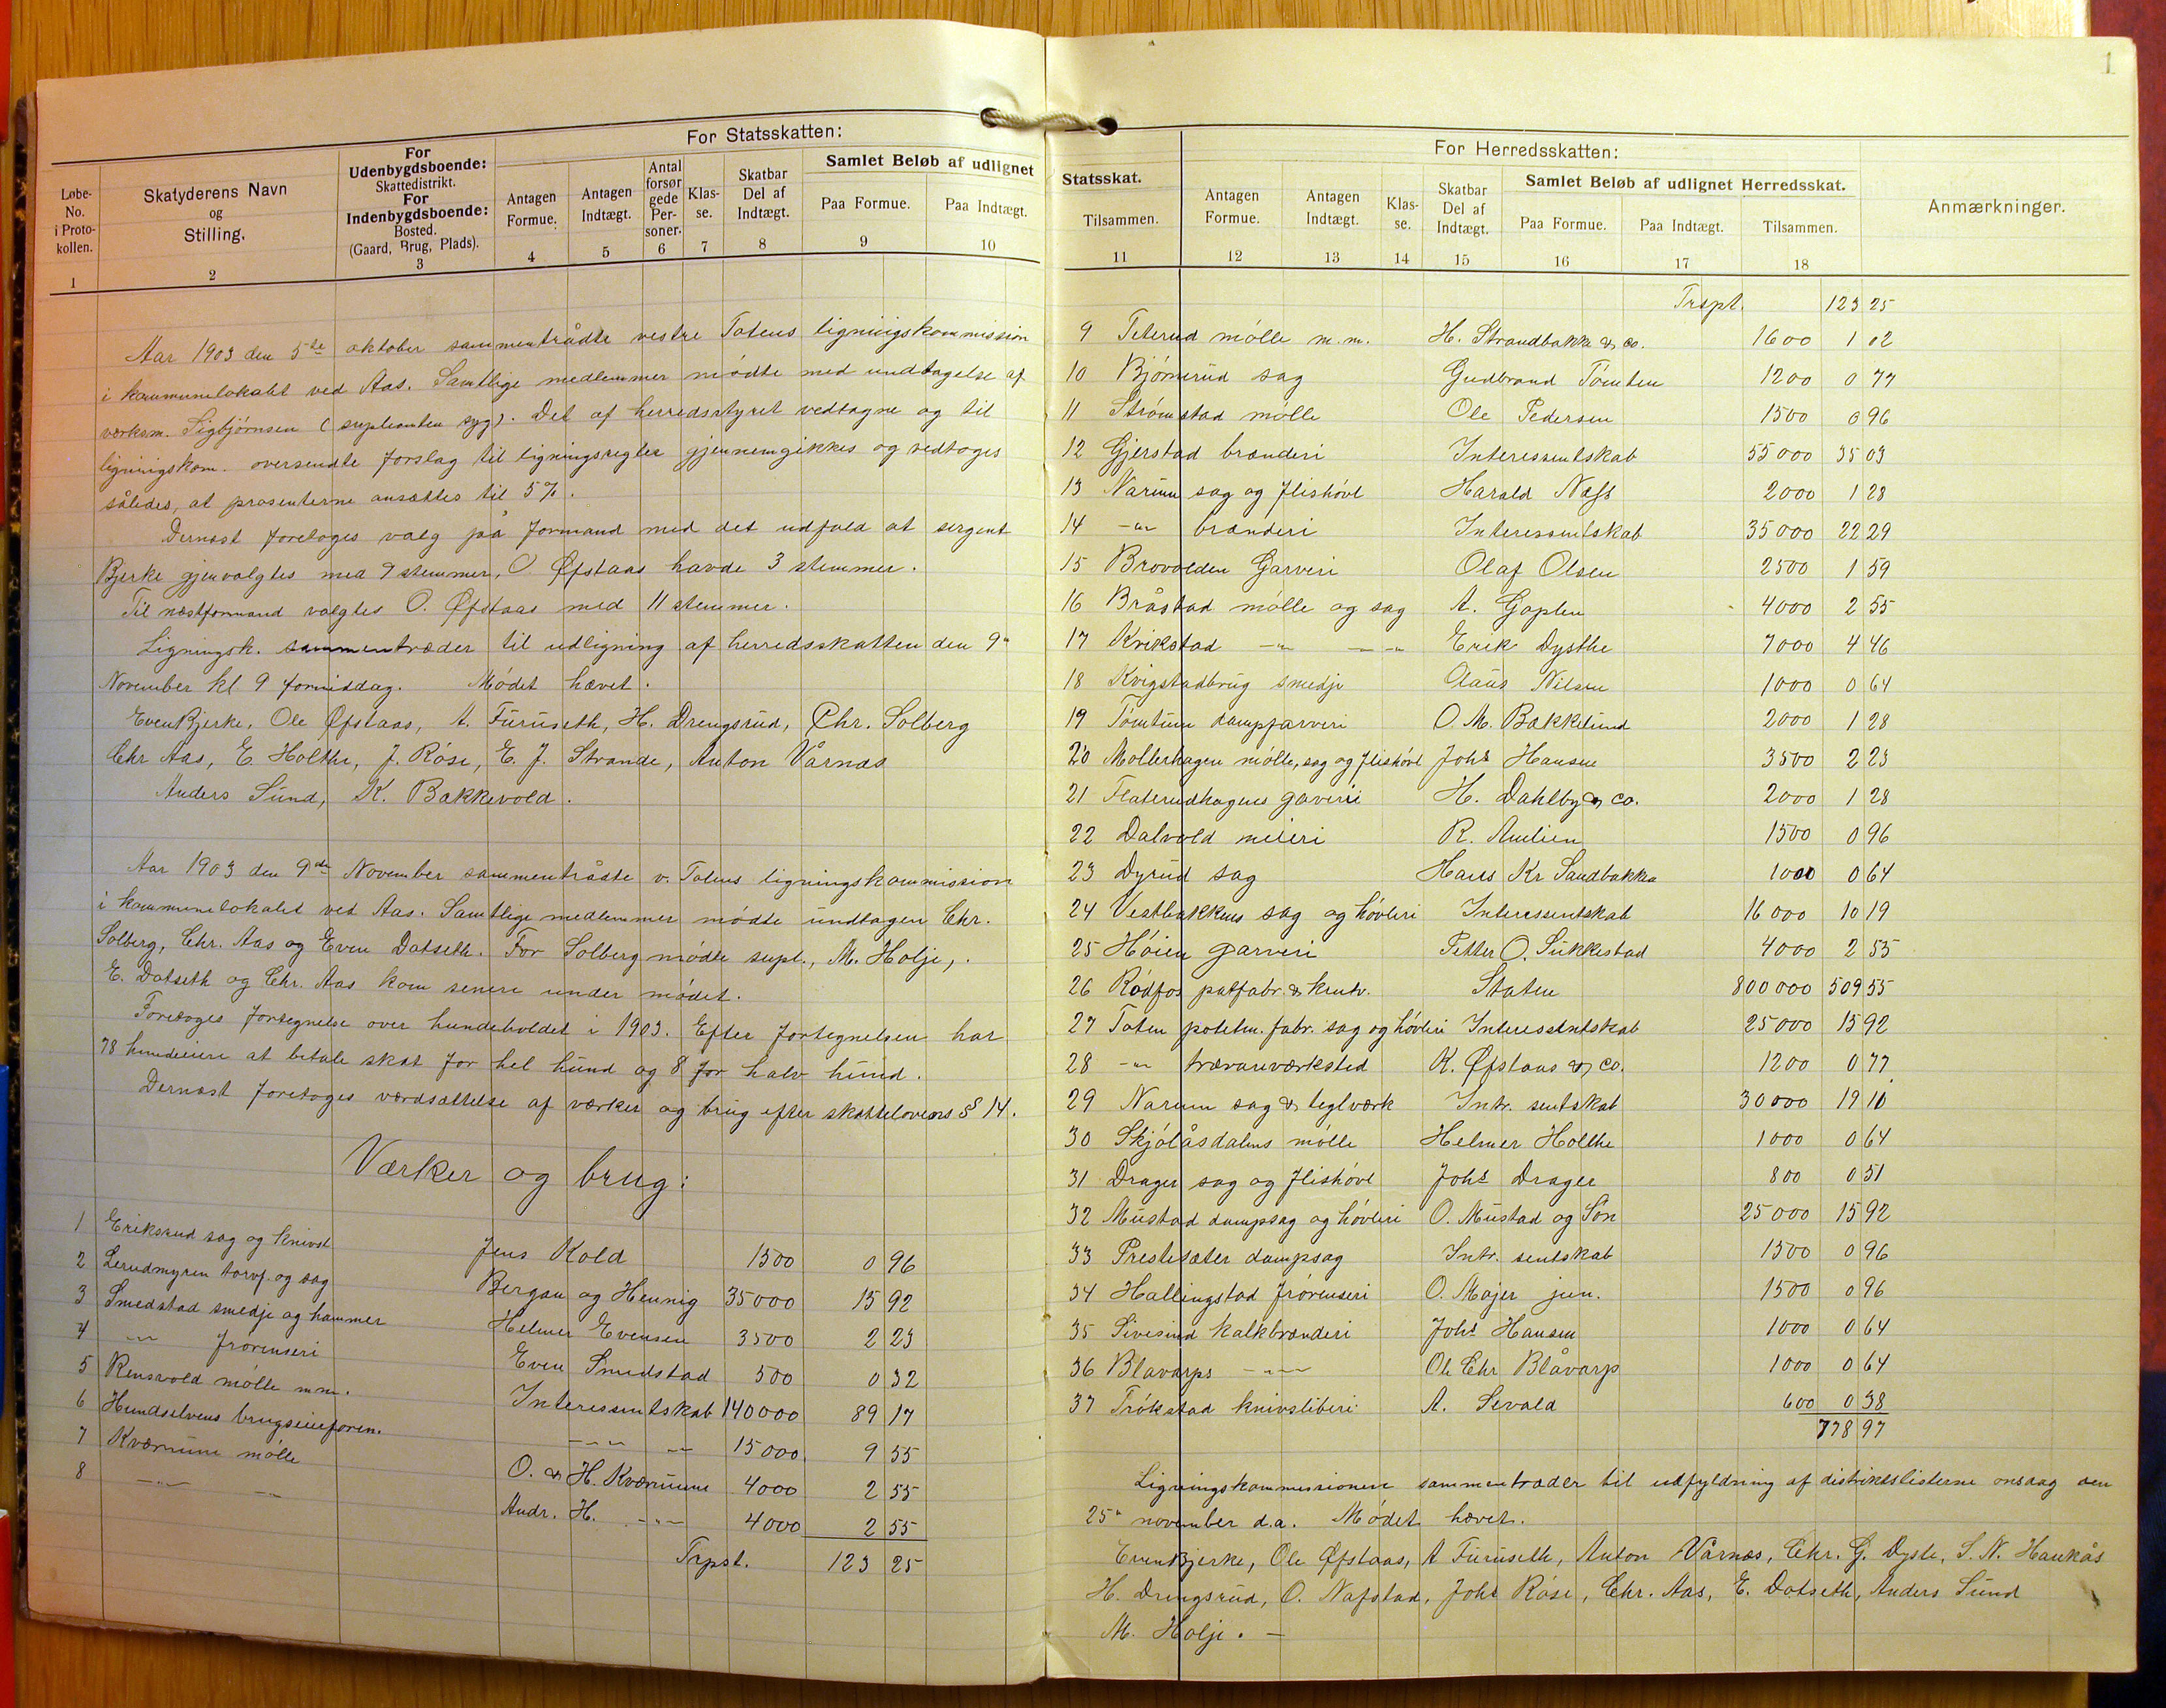 For Statsskatten:
Løbe-No. i Proto-kollen.
Skatyderens Navn og Stilling.
For Udenbygdsboende: Skattedistrikt. For Indenbygdsboende: Bosted. (Gaard, Brug, Plads).
Antagen Formue.
Antagen Indtægt.
Antal forsørgede Personer.
Klas-se.
Skatbar Del af Indtægt.
Samlet Beløb af udlignet
Paa Formue.
Paa Indtægt.
1 2 3 4 5 6 7 8 9 10
Aar 1903 den 5te oktober sammentrådte vestre Totens ligningskommission
i kommunelokalet ved Aas. Samtlige medlemmer mødte med undtagelse af
værksm. Sigbjørnsen (supleanten syg). Det af herredsstyret vedtagne og til
ligningskom. oversendte forslag til ligningsregler gjennemgikkes og vedtoges
således, at prosenterne ansættes til 5%.
Dernæst foretoges valg på formand med det udfald at sergent
Bjerke gjenvalgtes med 7 stemmer, O. Øfstaas havde 3 stemmer.
Til næstformand valgtes O. Øfstaas med 11 stemmer.
Ligningsk. sammentræder til udligning af herredsskatten den 9"
November kl 9 formiddag. Mødet hævet.
Even Bjerke, Ole Øfstaas, A. Furuseth, H. Drengsrud, Chr. Solberg
Chr Aas, E Holthe, J. Røse, E. J. Strande, Anton Vårnæs
Anders Sund, K. Bakkevold.
Aar 1903 den 9de November sammentrådte v. Totens ligningskommission
i kommunelokalet ved Aas. Samtlige medlemmer mødte undtagen Chr.
Solberg, Chr. Aas og Even Dotseth. For Solberg mødte supl., M. Holje,.
E. Dotseth og Chr. Aas kom senere under mødet.
Foretoges fortegnelse over hundeholdet i 1903. Efter fortegnelsen har
78 hundeeiere at betale skat for hel hund og 8 for halv hund.
Dernæst foretoges værdsættelse af værker og brug efter skattelovens § 14.
Værker og brug:
1 Eriksrud sag og knivsl Jens Kold 1500 0 96
2 Lerudmyren torvf. og sag Bergau og Hennig 35000 15 92
3 Smedstad smedje og hammer Helmer Evensen 3500 2 23
4 -"- frørenseri Even Smedstad 500 0 32
5 Rensvold mølle m.m. Interessentskab 140000 89 17
6 Hundselvens brugseieforen. -"- -"- 15000 9 55
7 Kværnum mølle O. & H. Kværnum 4000 2 55
8 -"- -"- Andr. H. -"- 4000 2 55
Trpst. 123 25
1
Statsskat.
Tilsammen.
For Herredsskatten:
Antagen Formue.
Antagen Indtægt.
Klas-se.
Skatbar Del af Indtægt.
Samlet Beløb af udlignet Herredsskat.
Paa Formue.
Paa Indtægt.
Tilsammen.
Anmærkninger.
11 12 13 14 15 16 17 18
Trspt. 123 25
9 Teterud mølle m.m. H. Strandbakk & co. 1600 1 02
10 Bjørnerud sag Gudbrand Tømten 1200 0 77
11 Strømstad mølle Ole Pedersen 1500 0 96
12 Gjerstad brænderi Interessentskab 55000 35 03
13 Narum sag og flishøvl Harald Næss 2000 1 28
14 -"- brænderi Interessentskab 35000 22 29
15 Brovolden Garveri Olaf Olsen 2500 1 59
16 Bråstad mølle og sag A. Gaplen 4000 2 55
17 Krikstad -"- -"- Erik Dysthe 7000 4 46
18 Kvigstadbrug smedje Claus Nilsen 1000 0 64
19 Tømtum dampfarveri O. M. Bakkelund 2000 1 28
20 Mollerhagen mølle, sag og flishøvl Johs Hansen 3500 2 23
21 Flaterudhagens gaveri H. Dahlby & co. 2000 1 28
22 Dalvold meieri R. Amlien 1500 0 96
23 Dyrud sag Hans Kr Sandbakka 1000 0 64
24 Vestbakkens sag og høvleri Interessentskab 16000 10 19
25 Høien garveri Petter O. Sukkestad 4000 2 55
26 Rødfos patfabr. & krutv. Staten 800000 509 55
27 Toten potetm. fabr. sag og høvleri Interessentskab 25000 15 92
28 -"- trævareværksted K. Øfstaas & co. 1200 0 77
29 Narum sag & teglværk Intr. sentskab 30000 19 10
30 Skjølåsdalens mølle Helmer Holthe 1000 0 64
31 Drager sag og flishøvl Johs Drager 800 0 51
32 Mustad dampsag og høvleri O. Mustad og Søn 25000 15 92
33 Prestesæter dampsag Intr. sentskab 1500 0 96
34 Hallingstad frørenseri O. Majer jun. 1500 0 96
35 Sivesind kalkbrænderi Johs Hansen 1000 0 64
36 Blåvarps -"- Ole Chr Blåvarp 1000 0 64
37 Trøkstad knivsliberi A. Sevald 600 0 38
778 97
Ligningskommissionen sammentræder til udfyldning af distriktslisterne onsdag den
25" november d.a. Mødet hævet.
Even Bjerke, Ole Øfstaas, A Furuseth, Anton Vårnæs, Chr. G. Dyste, S. N. Haukås
H. Drengsrud, O. Nafstad, Johs Røse, Chr. Aas, E. Dotseth, Anders Sund
M. Holje. -